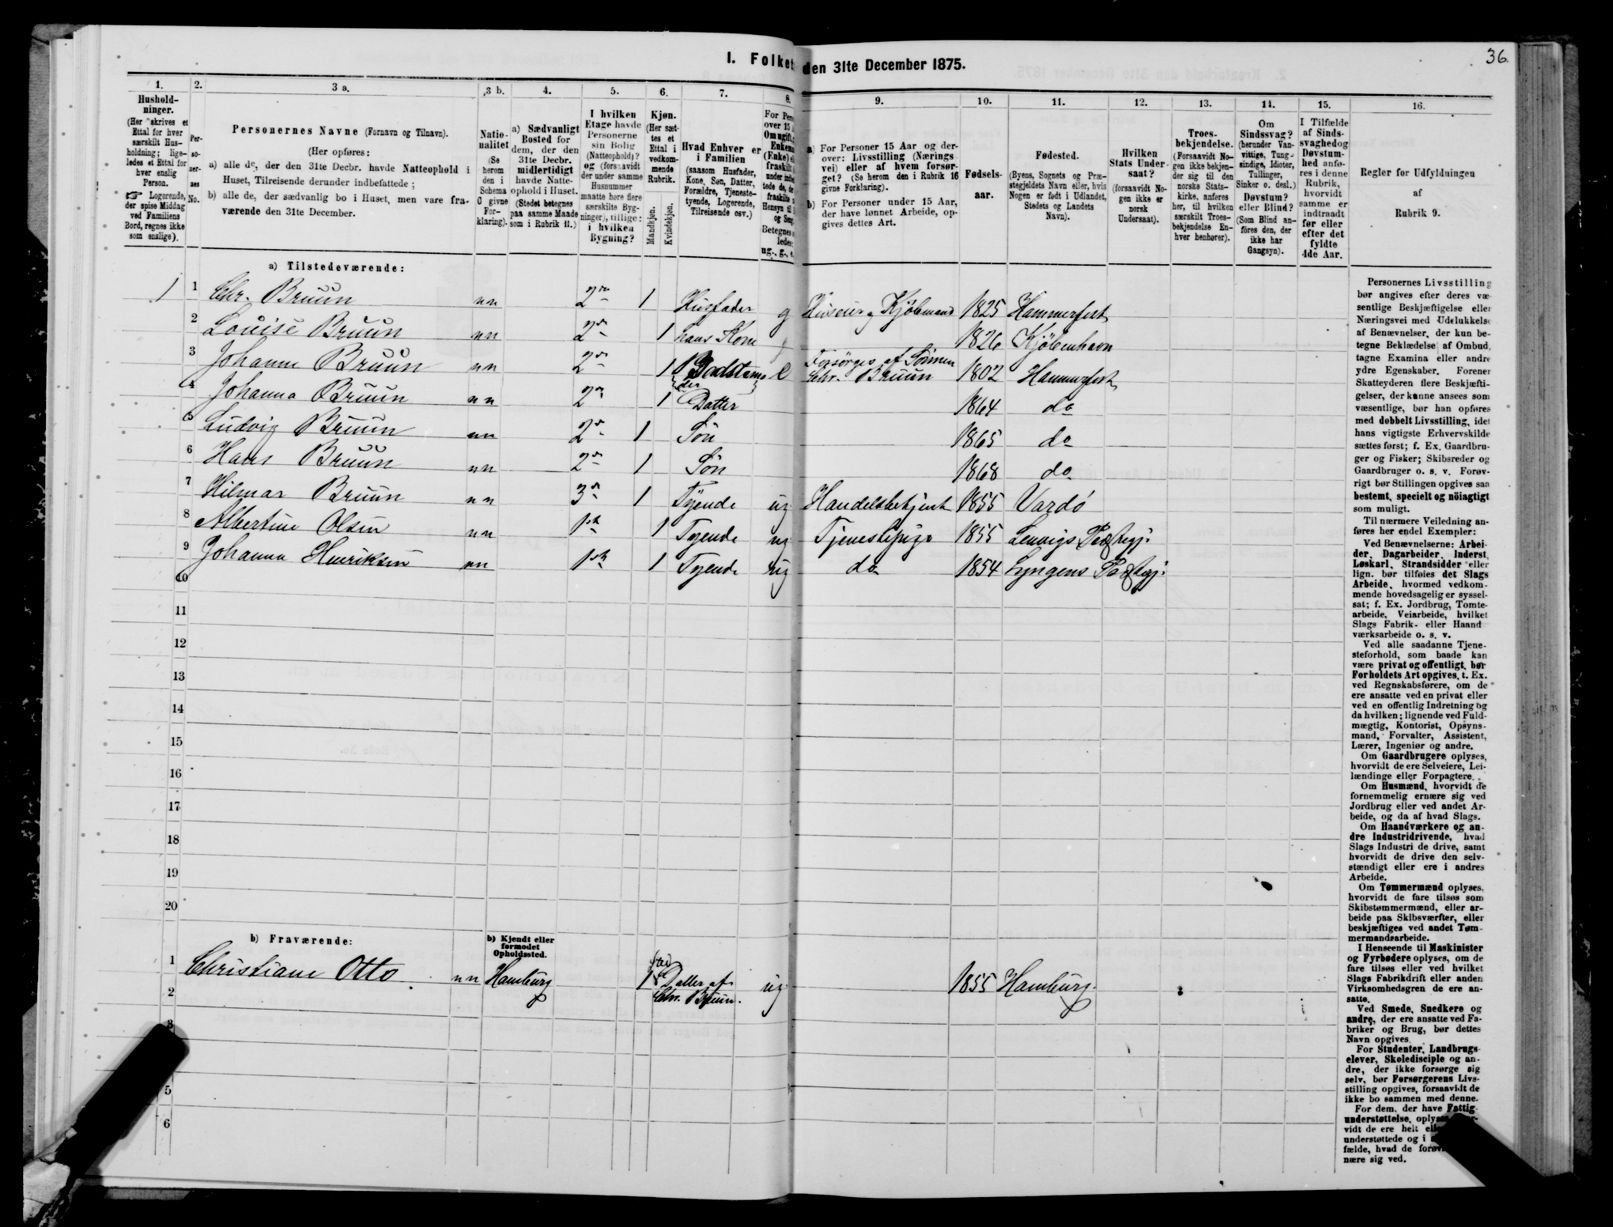 36.
I. Folket
den 31te December 1875.
1. 2. 3 a. 3 b. 4. 5. 6. 7. 8. 9. 10. 11. 12. 13. 14. 15. 16.
Hushold-
ninger.
(Her skrives et
Ettal for hver
særskilt Hus-
holdning; lige-
ledes et Ettal for
hver enslig
Person.
☞ Logerende,
der spise Middag
ved Familiens
Bord, regnes ikke
som enslige).
Per-
so-
ner-
nes
No.
Personernes Navne (Fornavn og Tilnavn).
(Her opføres:
a) alle de, der den 31te Decbr. havde Natteophold i
Huset, Tilreisende derunder indbefattede;
b) alle de, der sædvanlig bo i Huset, men vare fra-
værende den 31te December.
Natio-
nalitet
(Se
herom
den i
Schema
C givne
For-
klaring).
a) Sædvanligt
Bosted for
dem, der den
31te Decbr.
midlertidigt
havde Natte-
ophold i Huset.
(Stedet betegnes
paa samme Maade
som i Rubrik 11.)
I hvilken
Etage havde
Personerne
sin Bolig
(Natteophold)?
og (forsaavidt
der under samme
Husnummer
maatte høre flere
særskilte Byg-
ninger), tillige:
i hvilken
Bygning?
Kjøn.
(Her sæt-
tes et
Ettal i
vedkom-
mende
Rubrik.
Mandkjøn.
Kvindekjøn.
Hvad Enhver er
i Familien
(saasom Husfader,
Kone, Søn, Datter,
Forældre, Tjeneste-
tyende, Logerende,
Tilreisende osv.)
For Pers
over 15
Omugift,
Enkema
(Enke) e
fraskilt
a) For Personer 15 Aar og der-
over: Livsstilling (Nærings-
vei) eller af hvem forsør-
get? (Se herom den i Rubrik 16
givne Forklaring).
b) For Personer under 15 Aar,
der have lønnet Arbeide, op-
gives dettes Art.
Fødsels-
aar.
Fødested.
(Byens, Sognets og Præ-
stegjeldets Navn eller, hvis
Nogen er født i Udlandet,
Stedets og Landets
Navn).
Hvilken
Stats Under-
saat?
(forsaavidt No-
gen ikke er
norsk
Undersaat).
Troes-
bekjendelse.
(Forsaavidt No-
gen ikke bekjen-
der sig til den
norske Stats-
kirke, anføres
her, til hvilken
særskilt Troes-
bekjendelse En-
hver henhører).
Om
Sindssvag?
(herunder Van-
vittige, Tung-
sindige, Idioter,
Tullinger,
Sinker o. desl.)
Døvstum?
eller Blind?
(Som Blind an-
føres den, der
ikke har
Gangsyn).
I Tilfælde
af Sinds-
svaghed og
Døvstum-
hed anfø-
res i denne
Rubrik,
hvorvidt
samme er
indtraadt
før eller
efter det
fyldte
4de Aar.
Regler for Udfyldningen
af
Rubrik 9.
a) Tilstedeværende:
1 1 Chr. Bruun nn 2den 1 Husfader g Huseier og Kjøbmand 1825 Hammerfest
2 Louise Bruun nn 2den 1 hans Kone 1826 Kjøbenhavn
3 Johanne Bruun nn 2den 1 e Forsørges af Sønnen Chr. Bruun 1802 Hammerfest
4 Johanna Bruun nn 2den 1 Datter 1864 do
5 Ludvig Bruun nn 2den 1 Søn 1865 do
6 Hans Bruun nn 2den 1 Søn 1868 do
7 Hilmar Bruun nn 3die 1 Tyende ug Handelsbetjent 1855 Vardö
8 Albertine Olsen nn 1ste 1 Tyende ug Tjenestepige 1855 Lenvigs Præstegj:
9 Johanna Henriksen nn 1ste 1 Tyende ug do 1854 Lyngens Præstegj:
10
11
12
13
14
15
16
17
18
19
20
b) Fraværende:
b) Kjendt eller
formodet
Opholdssted.
1 Christiane Otto nn Hamburg 1 Datter af Chr. Bruun. ug 1855 Hamburg.
2
3
5
6
Personernes Livsstilling
bør angives efter deres væ-
sentlige Beskjæftigelse eller
Næringsvei med Udelukkelse
af Benævnelser, der kun be-
tegne Beklædelse af Ombud,
tagne Examina eller andre
ydre Egenskaber. Forener
Skatteyderen flere Beskjæfti-
gelser, der kunne ansees som
væsentlige, bør han opføres
med dobbelt Livsstilling, idet
hans vigtigste Erhvervskilde
sættes først; f. Ex. Gaardbru-
ger og Fisker; Skibsreder og
Gaardbruger o. s. v. Forøv-
rigt bør Stillingen opgives saa
bestemt, specielt og nöiagtigt
som muligt.
Til nærmere Veiledning an-
føres her endel Exempler:
Ved Benævnelserne: Arbei-
der, Dagarbeider, Inderst,
Løskarl, Strandsidder eller
lign. bør tilføies det Slags
Arbeide, hvormed vedkom-
mende hovedsagelig er syssel-
sat; f. Ex. Jordbrug, Tomte-
arbeide, Veiarbeide, hvilket
Slags Fabrik- eller Haand
værksarbeide o. s. v.
Ved alle saadanne Tjene-
steforhold, som baade kan
være privat og offentligt, bør
Forholdets Art opgives, t. Ex.
ved Regnskabsførere, om de
ere ansatte ved en privat eller
ved en offentlig Indretning og
da hvilken; lignende ved Fuld-
mægtig, Kontorist, Opsyns-
mand, Forvalter, Assistent,
Lærer, Ingeniør og andre.
Om Gaardbrugere oplyses,
hvorvidt de ere Selveiere, Lei-
lændinge eller Forpagtere.
Om Husmænd, hvorvidt de
fornemmelig ernære sig ved
Jordbrug eller ved andet Ar-
beide, og da af hvad Slags.
Om Haandværkere og an-
dre Industridrivende, hvad
Slags Industri de drive, samt
hvorvidt de drive den selv-
stændigt eller ere i andres
Arbeide.
Om Tømmermænd oplyses,
hvorvidt de fare tilsøs som
Skibstømmermænd, eller ar-
beide paa Skibsværfter, eller
beskjæftiges ved andet Tøm-
mermandsarbeide.
I Henseende til Maskinister
og Fyrbødere oplyses, om de
fare tilsøs eller ved hvilket
Slags Fabrikdrift eller anden
Virksomhedsgren de ere an-
satte.
Ved Smede, Snedkere og
andre, der ere ansatte ved Fa-
briker og Brug, bør dettes
Navn opgives.
For Studenter, Landbrugs-
elever, Skoledisciple og an-
dre, der ikke forsørge sig
selv, bør Forsørgerens Livs-
stilling opgives, forsaavidt de
ikke bo sammen med denne.
For dem, der have Fattig-
understøttelse,
vidt de ere helt
understøttede og i
fælde, hvad de
nære sig ved.